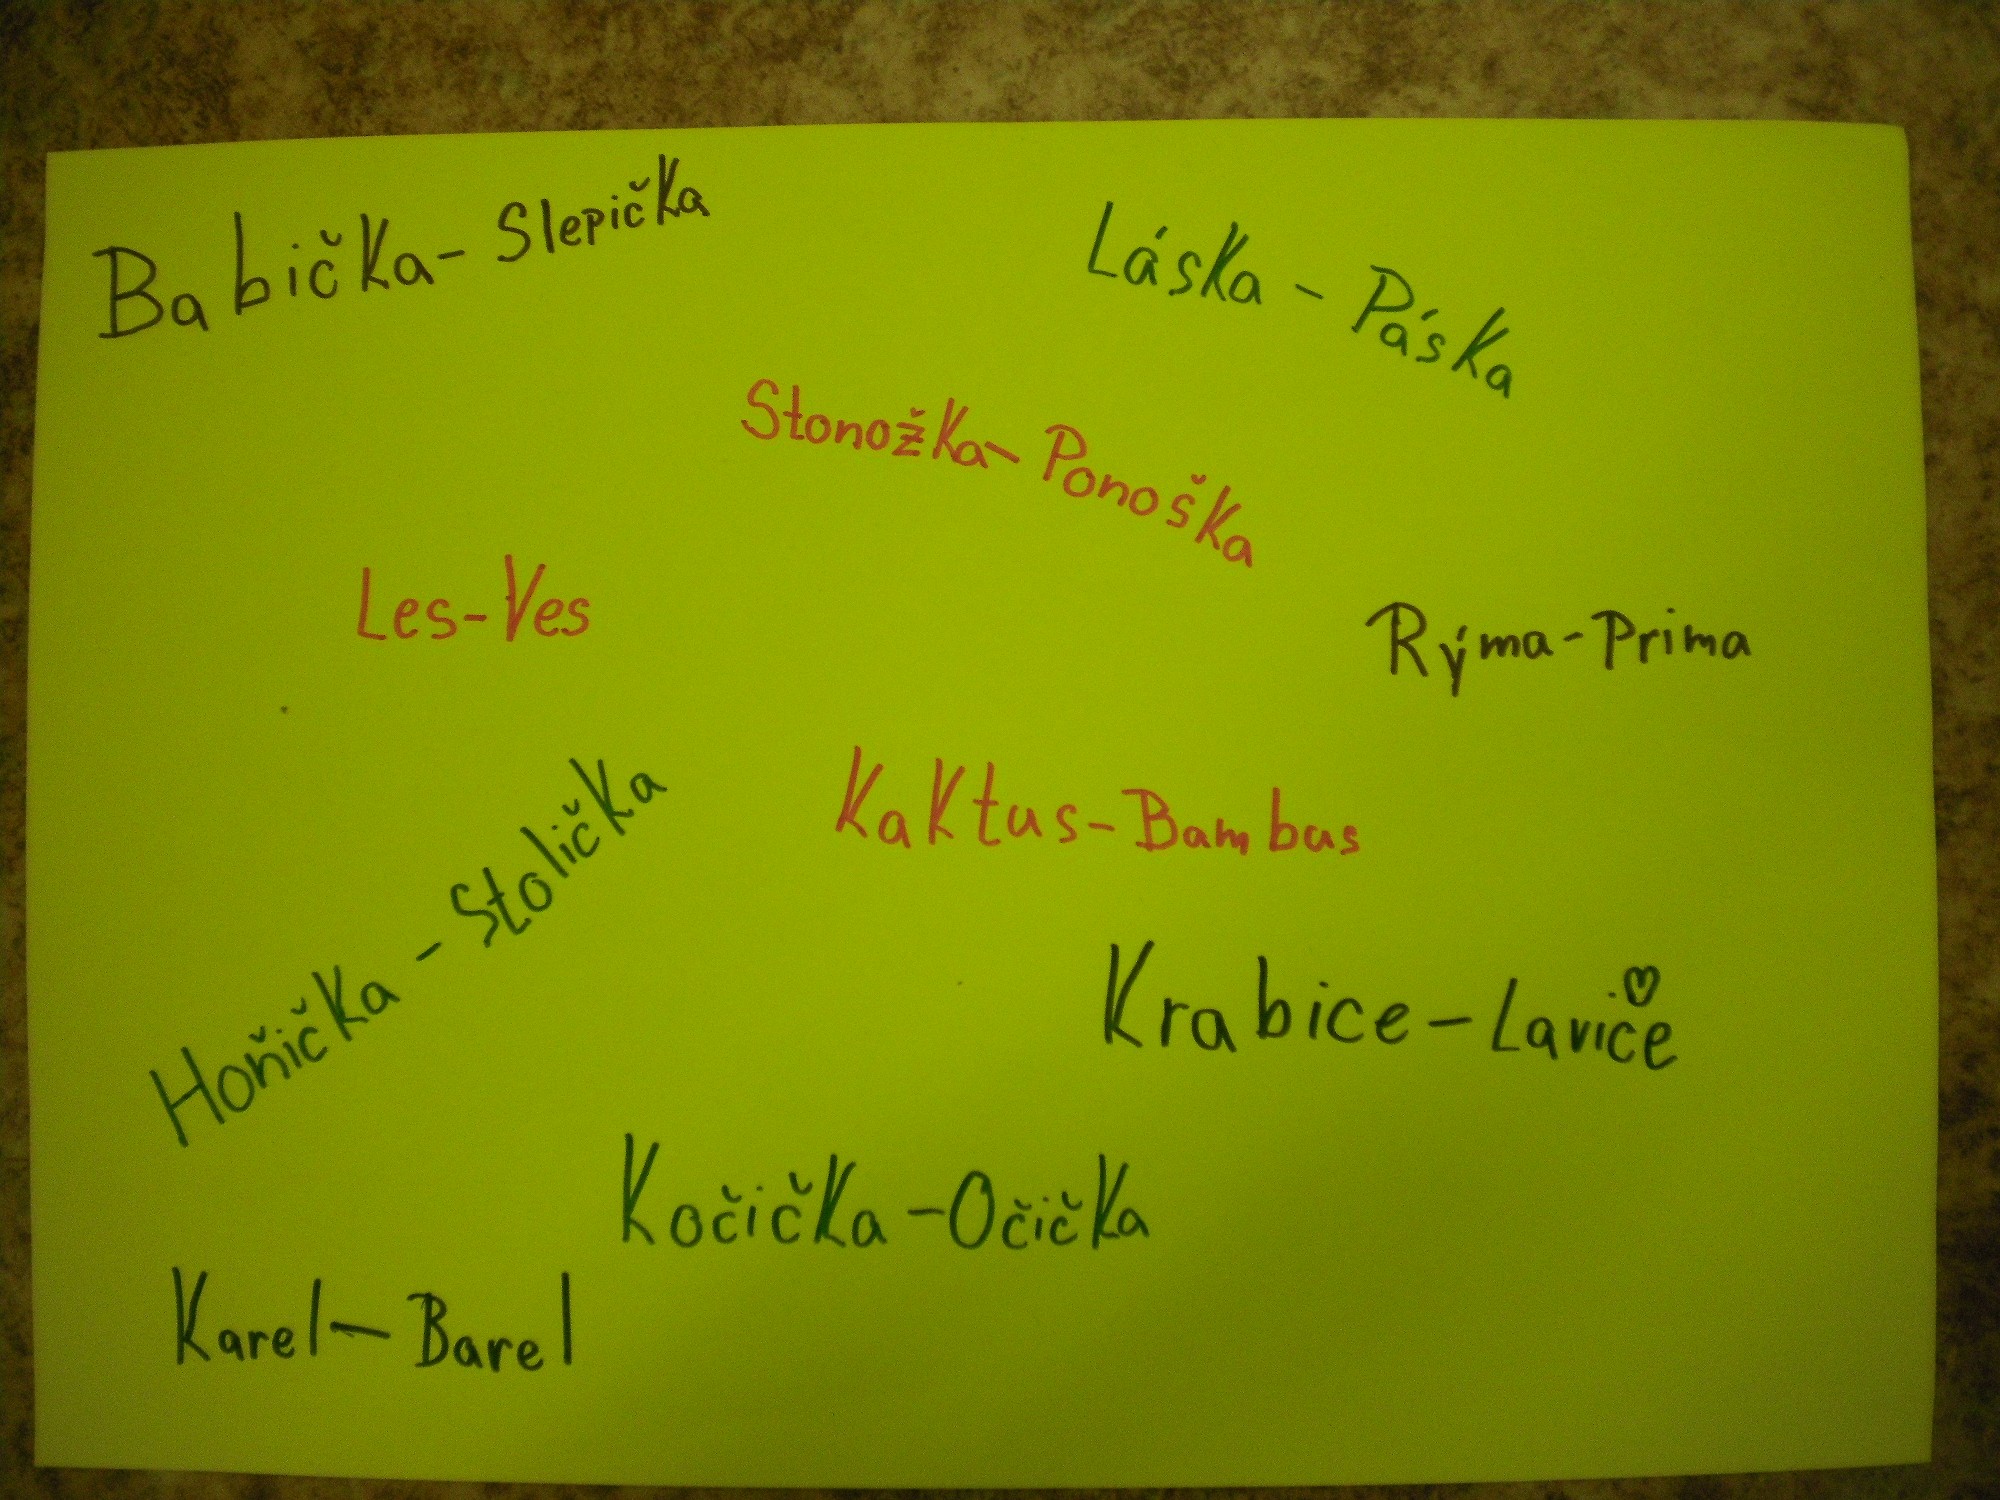 Babička - Slepička
Láska - Páska
Stonožka - Ponoška
Les - Ves
Rýma - Prima
Kaktus - Bambus
Hoňička - Stolička
Krabice - Lavice
Kočička - Očička
Karel - Barel